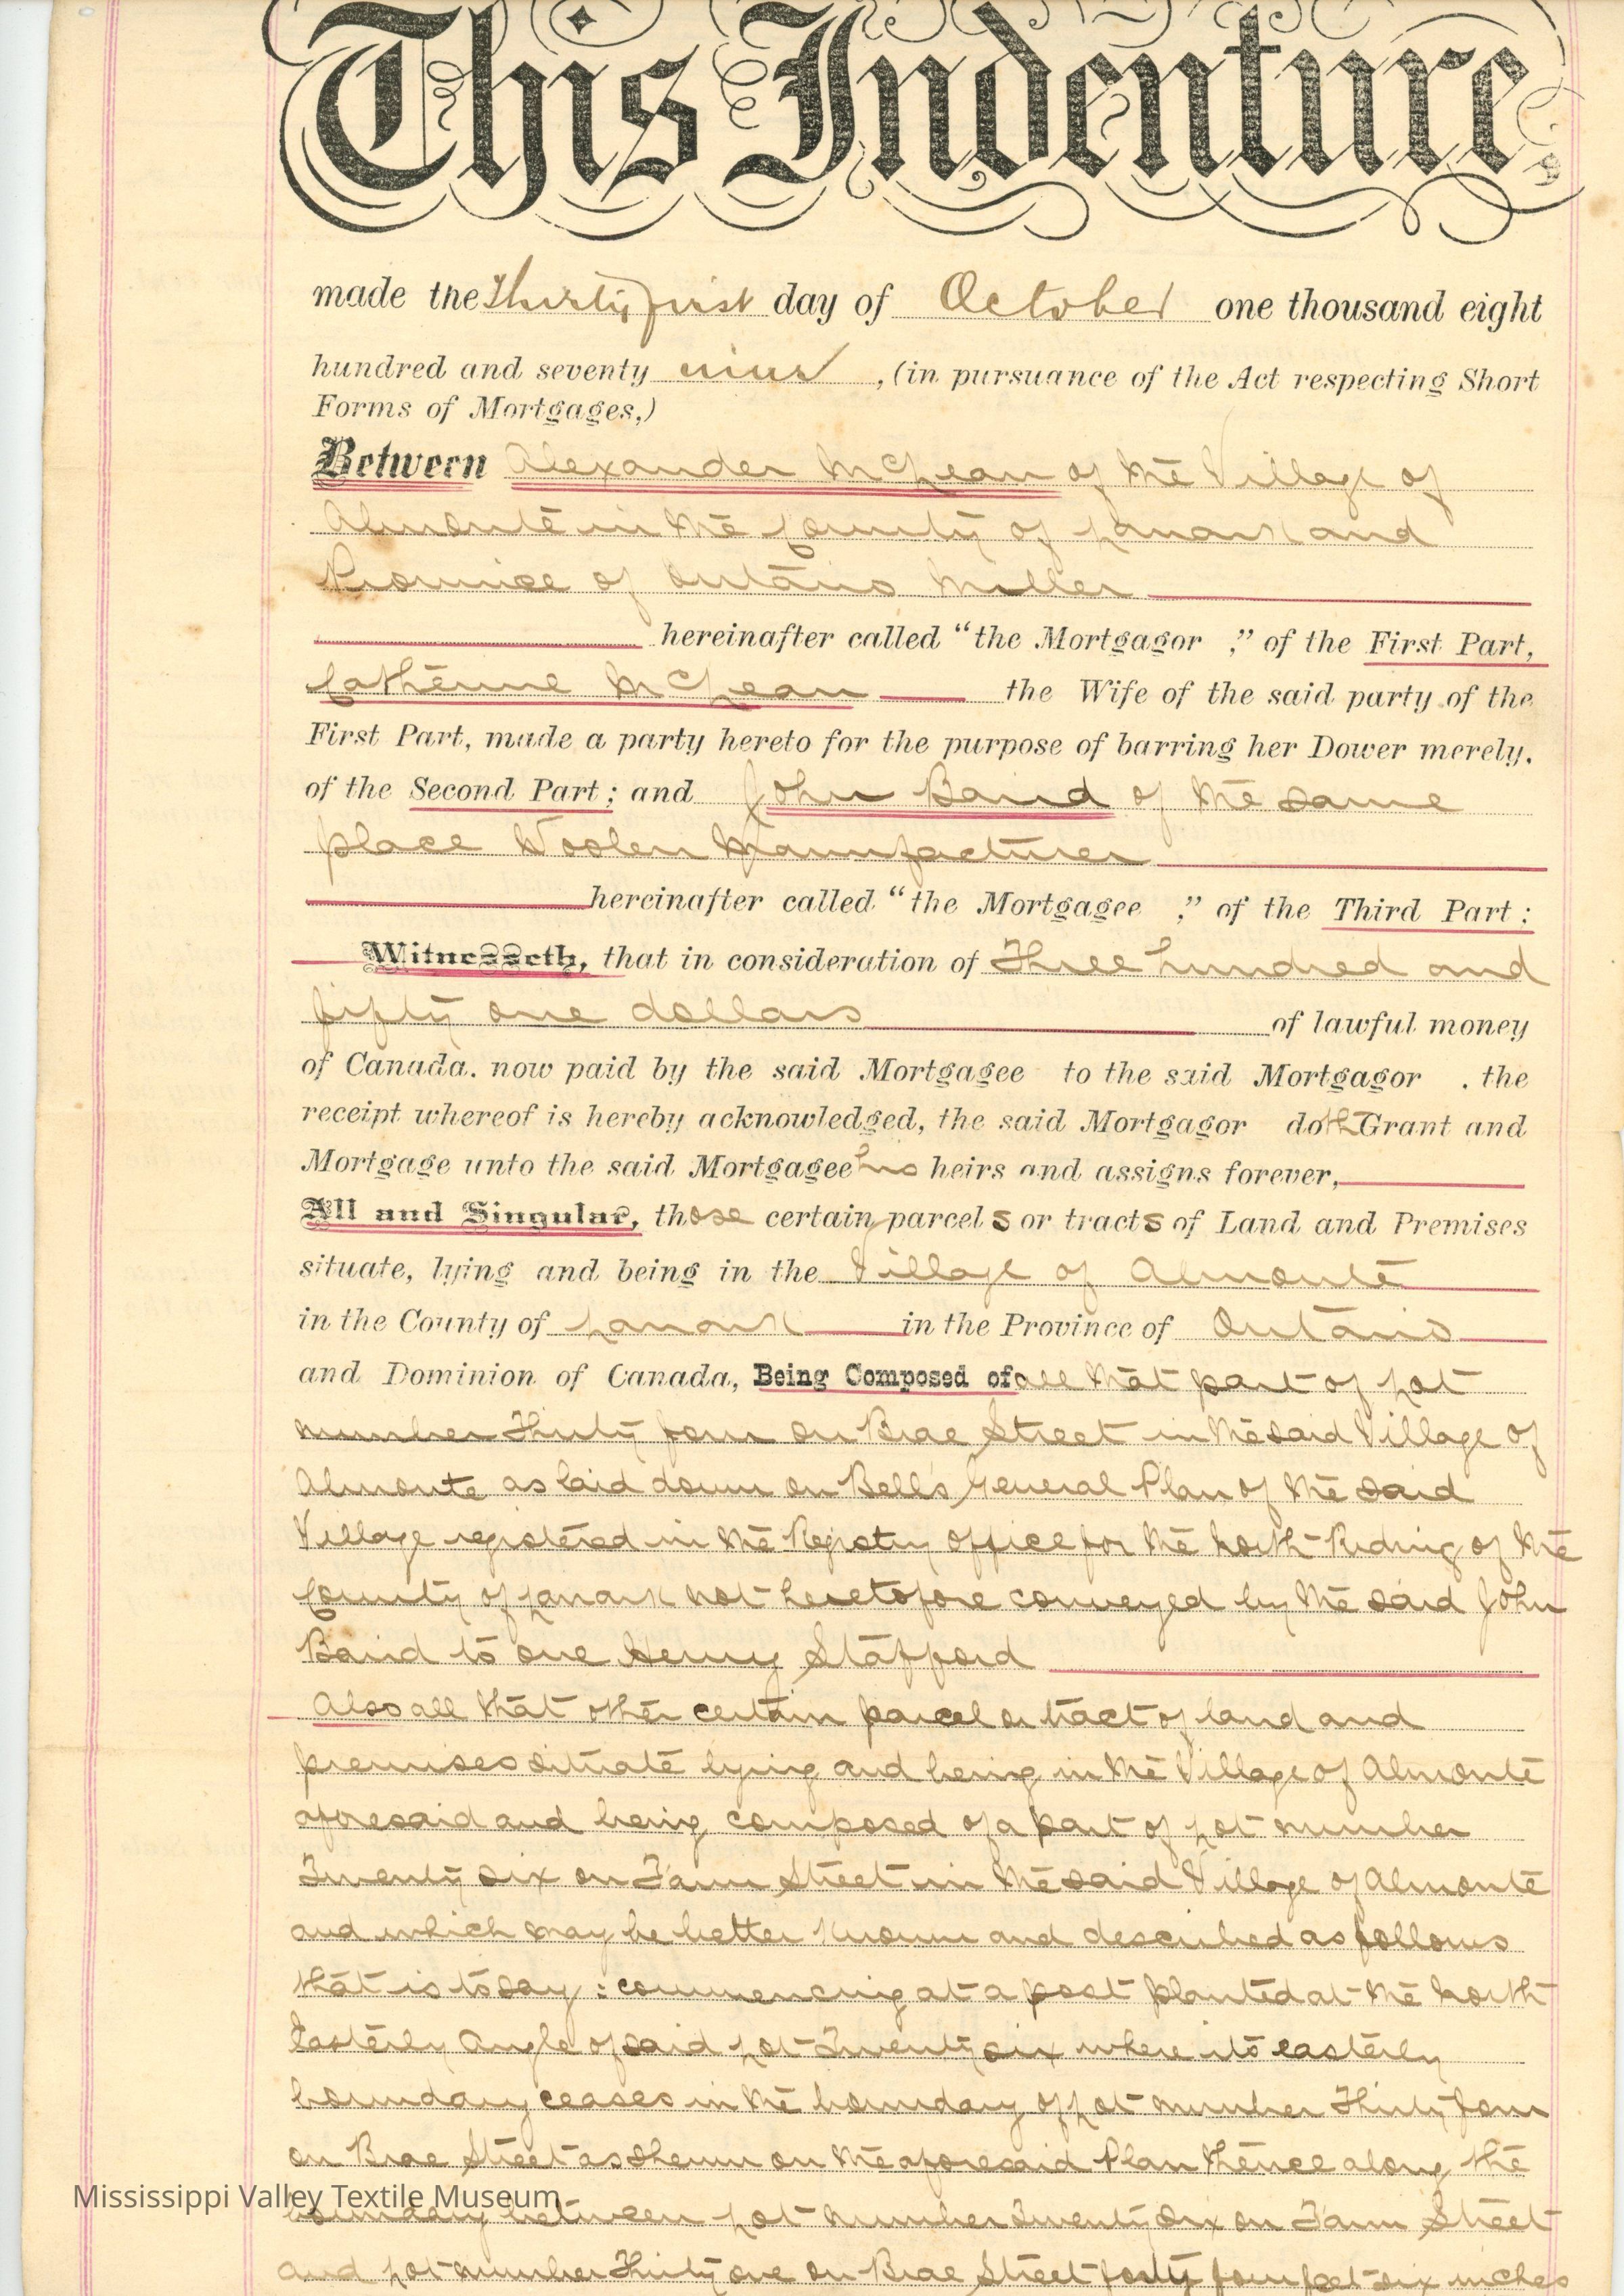 This Indenture
made the Thirty first day of October one thousand eight
hundred and seventy nine , (in pursuance of the Act respecting Short
Forms of Mortgages,)
Between Alexander McLean of the Village of
Almonte in the County of Lanark and
Province of Ontario Miller
hereinafter called "the Mortgagor ;" of the First Part,
Catherine McLean the Wife of the said party of the
First Part, made a party hereto for the purpose of barring her Dower merely.
of the Second Part; and John Baird of the same
place Woolen Manufacturer
hereinafter called "the Mortgagee ;" of the Third Part:
Witnesseth, that in consideration of Three hundred and
fifty one dollars of lawful money
of Canada. now paid by the said Mortgagee to the said Mortgagor . the
receipt whereof is hereby acknowledged, the said Mortgagor doth Grant and
Mortgage unto the said Mortgagee his heirs and assigns forever,
All and Singular, those certain parcels or tracts of Land and Premises
situate, lying and being in the Village of Almonte
in the County of Lanark in the Province of Ontario
and Dominion of Canada, Being Composed of all that part of Lot
number Thirty four on Brae Street in the said Village of
Almonte as laid down on Bell's General Plan of the said
Village registered in the Registry office for the North Riding of the
County of Lanark not heretofore conveyed by the said John
Baird to one Henry Stafford
Also all that other certain parcel or tract of land and
premises situate lying and being in the Village of Almonte
aforesaid and being composed of a part of Lot number
Twenty six on Farm Street in the said Village of Almonte
and which may be better known and described as follows
that is to say : commencing at a post planted at the North
Easterly Angle of said Lot Twenty six where its easterly
boundary ceases in the boundary of Lot number Thirty four
on Brae Street as shewn on the aforesaid Plan thence along the
boundary between Lot number Twenty six on Farm Street
and Lot number Thirty one on Brae Street forty four feet six inches
Mississippi Valley Textile Museum